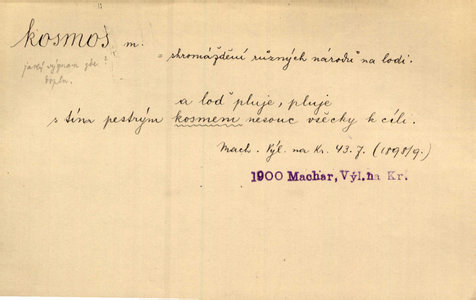 kosmos m.
= shromáždění různých národů na lodi.
jaký význam zde?
dopln.
a loď pluje, pluje
s tím pestrým kosmem nesouc všecky k cíli.
Mach. Výl. na Kr. 43.7. (1898/9.)
1900 Machar, Výl. na Kr.